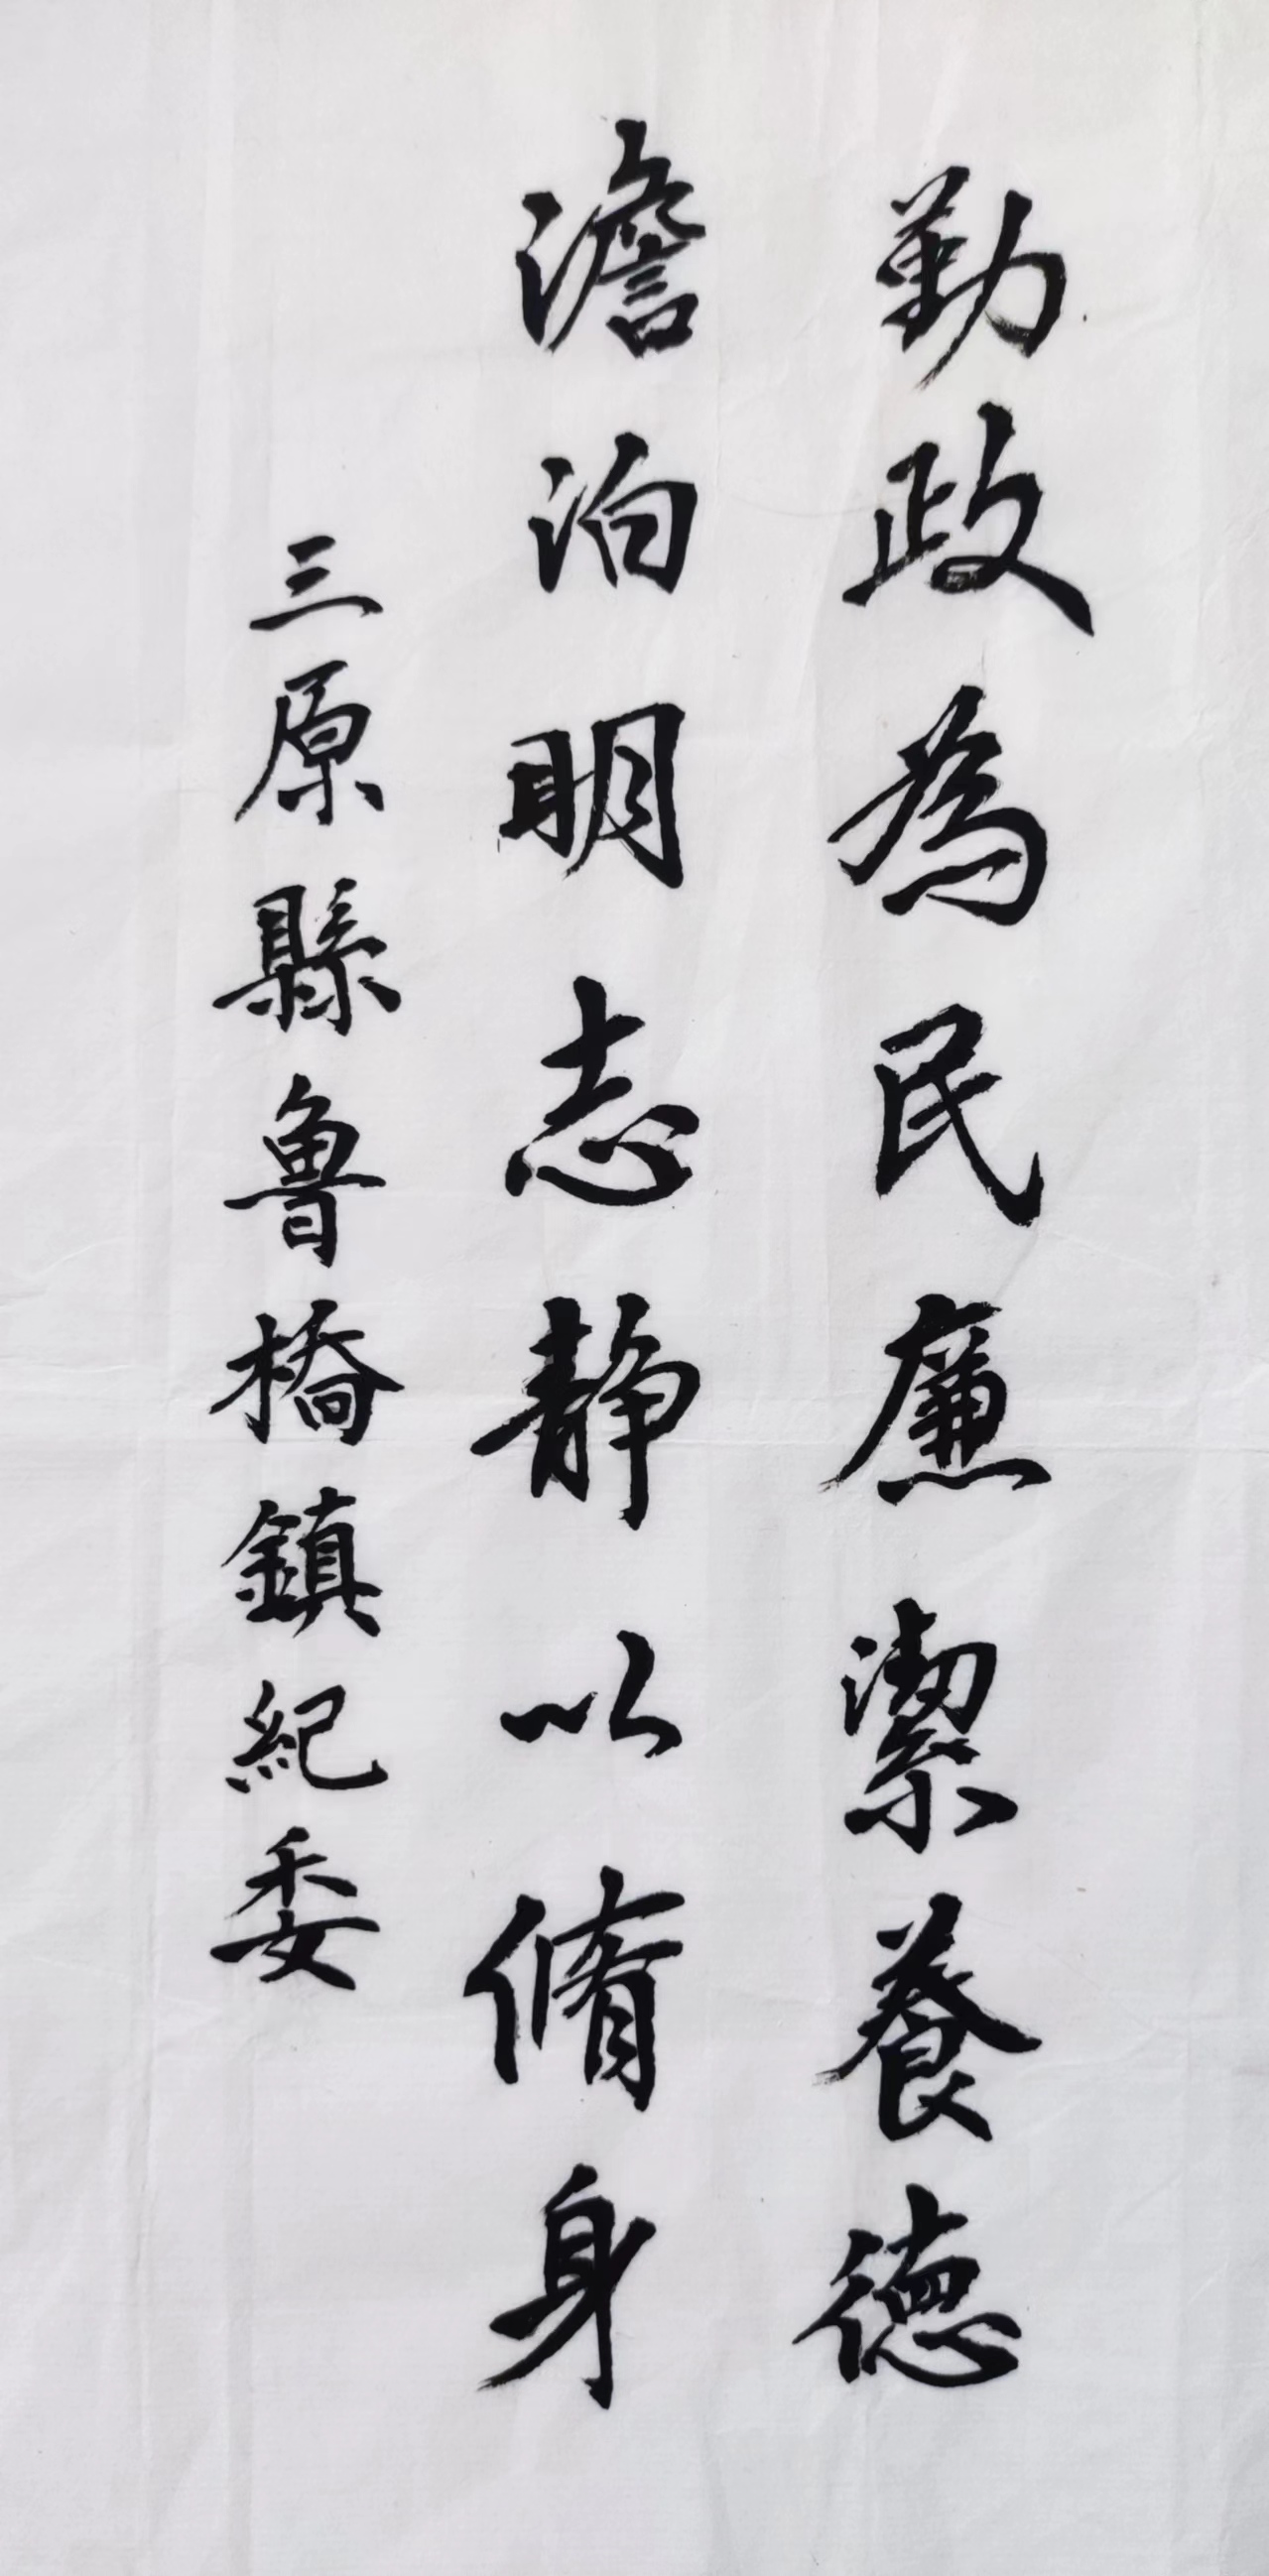 勤政為民廉潔養德
澹泊明志靜以脩身
三原縣魯橋鎮紀委